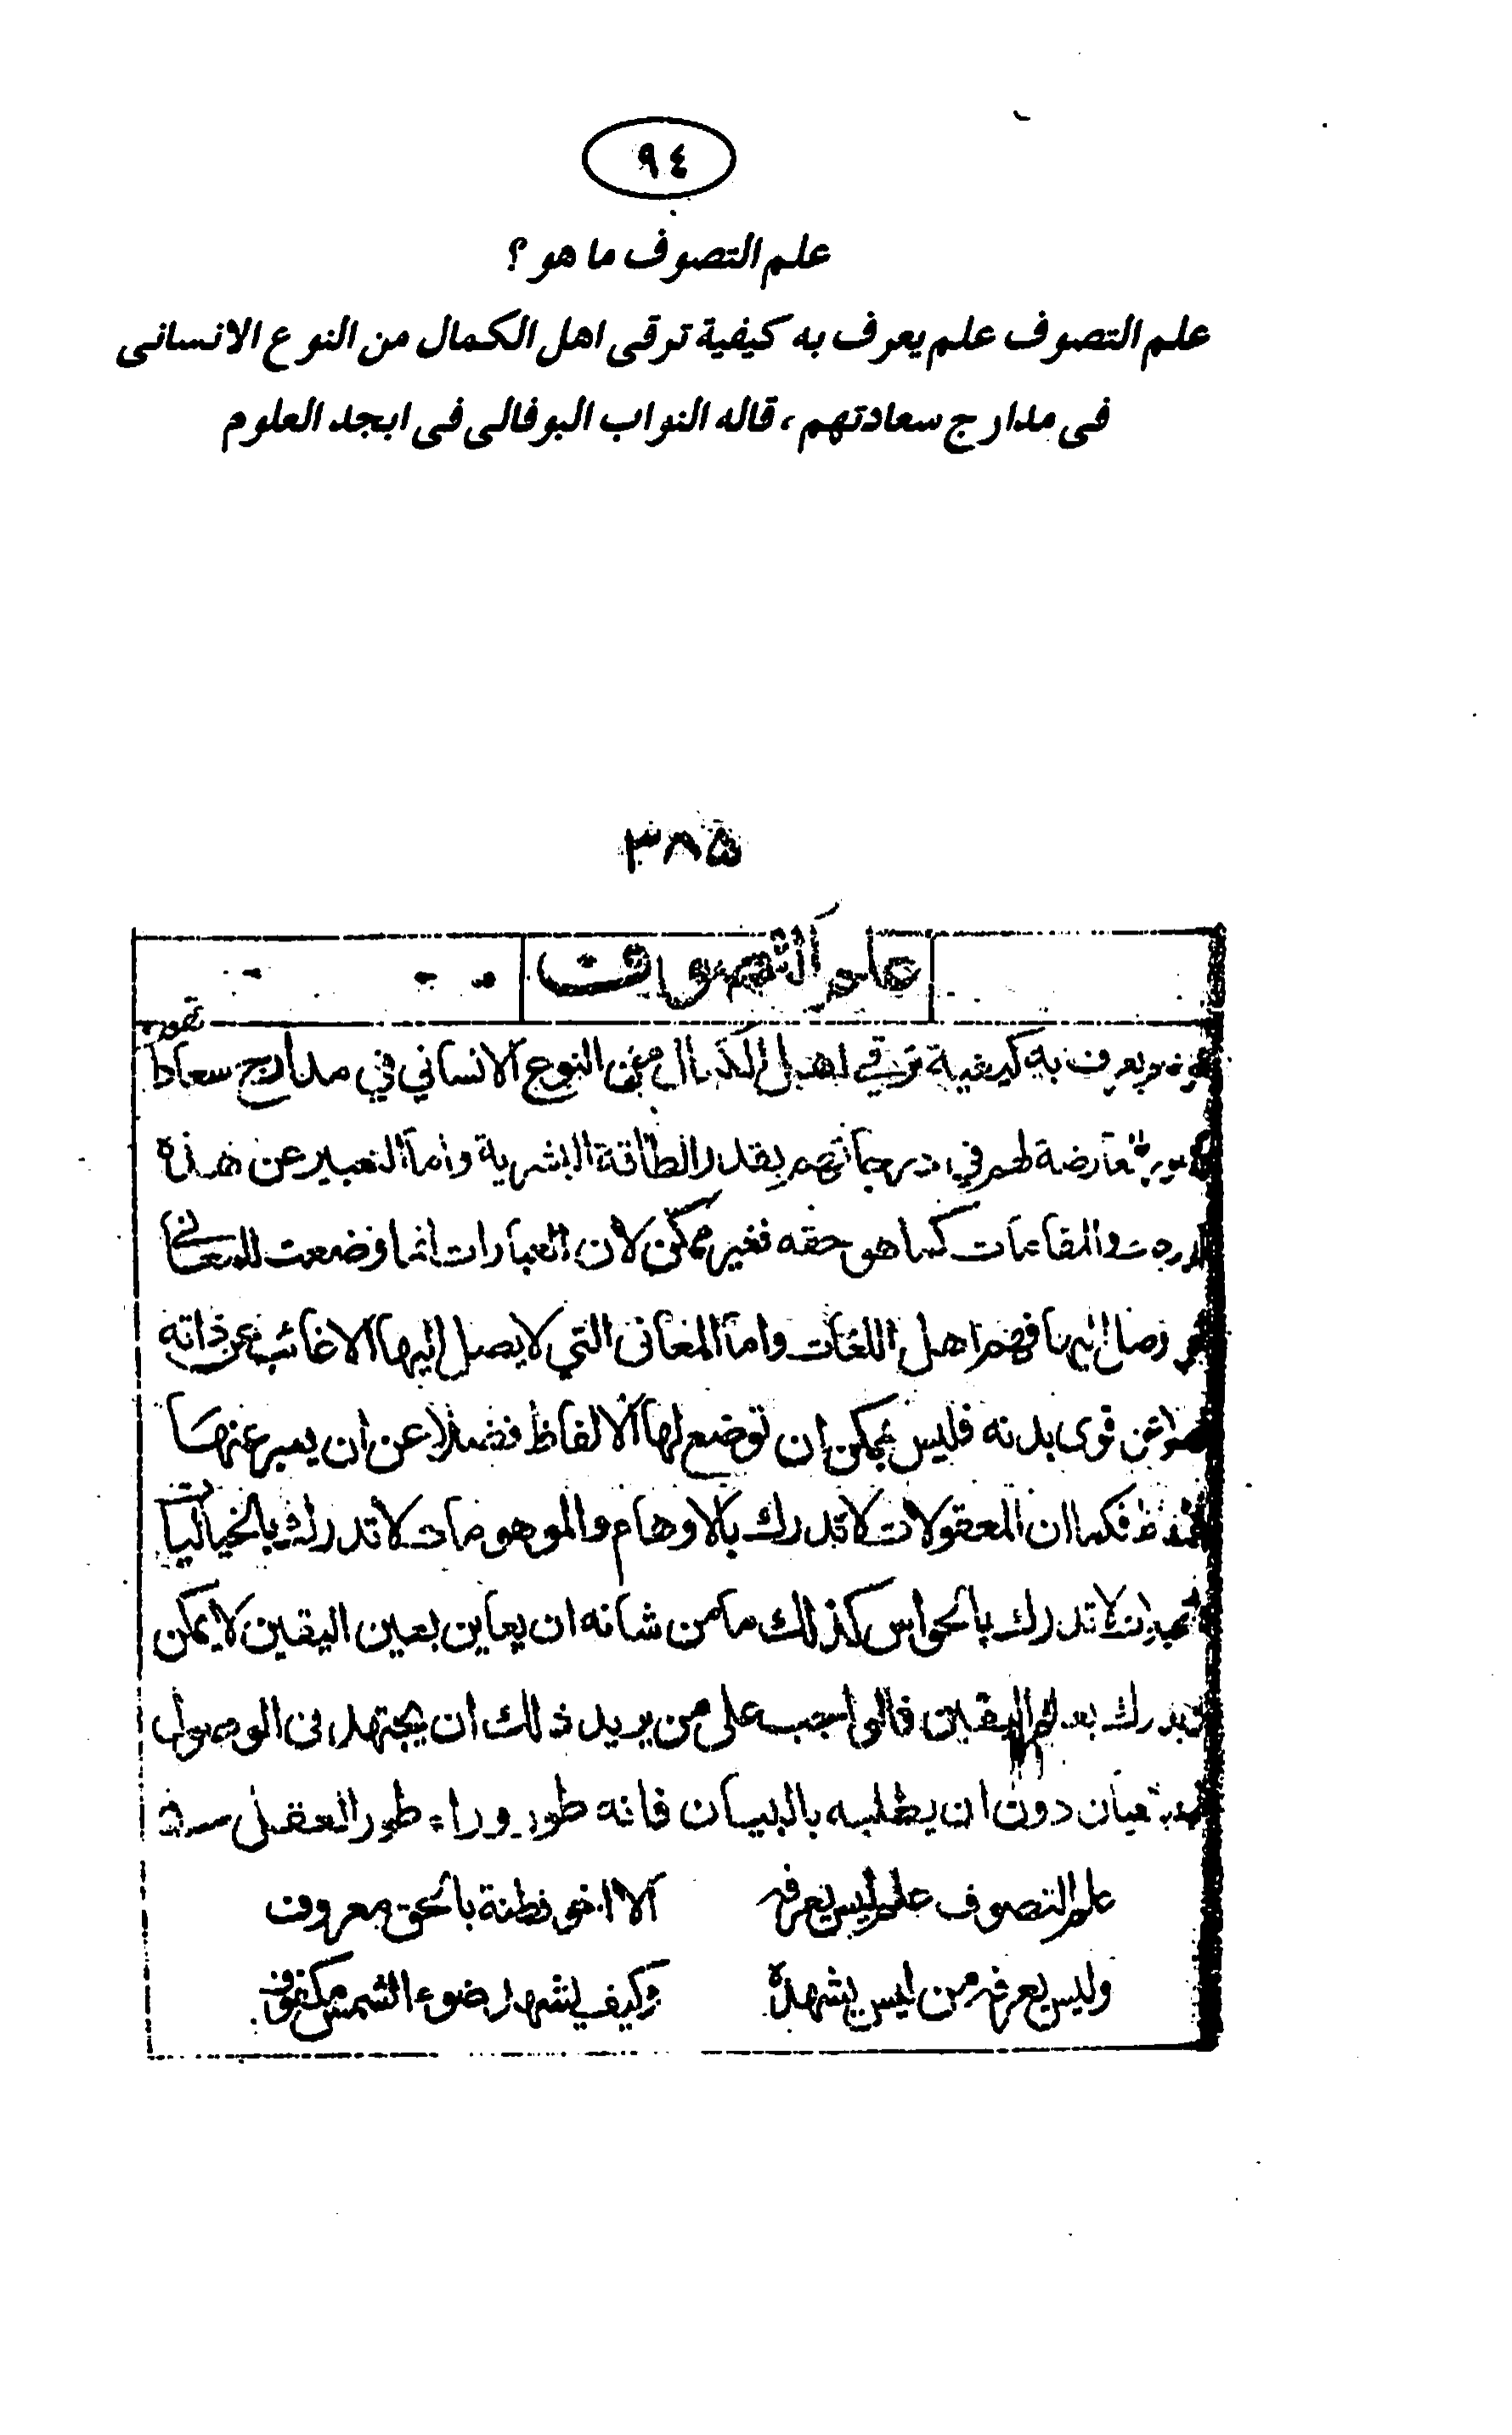 ٩٤
علم التصوف ما هو ؟
علم التصوف علم يعرف به كيفية ترقى اهل الكمال من النوع الانسانى
فى مدارج سعادتهم ، قاله النواب البوفالى فى ابجد العلوم
٣٨۵
علم التصوف
يعرف به كيفية ترقي اهل الكمال من النوع الانساني في مدارج سعادا
العارضة لهم في درجاتهم بقدر الطاقة البشرية واما التعبير عن هذه
والمقامات كما هو حقه فغير ممكن لان العبارات انما وضعت للمعاني
فهم اهل اللغات واما المعانى التي لا يصل اليها الا غائب عن ذاته
عن قوى بدنه فليس بممكن ان توضع لها الالفاظ فضلا عن ان يعبر عنها
فكما ان المعقولات لا تدرك بالاوهام والموهومات لا تدرك بالخياليا
لا تدرك بالحواس كذلك ما من شانه ان يعاين بعين اليقين لا يمكن
بعلم اليقين فالواجب على من يريد ذلك ان يجتهد فى الوصول
دون ان يطلبه بالبيان فانه طور وراء طور العقل
علم التصوف علم ليس يعرفه الا اخو فطنة بالحق معروف
وليس يعرفه من ليس يشهده وكيف يشهد ضوء الشمس مكفوف